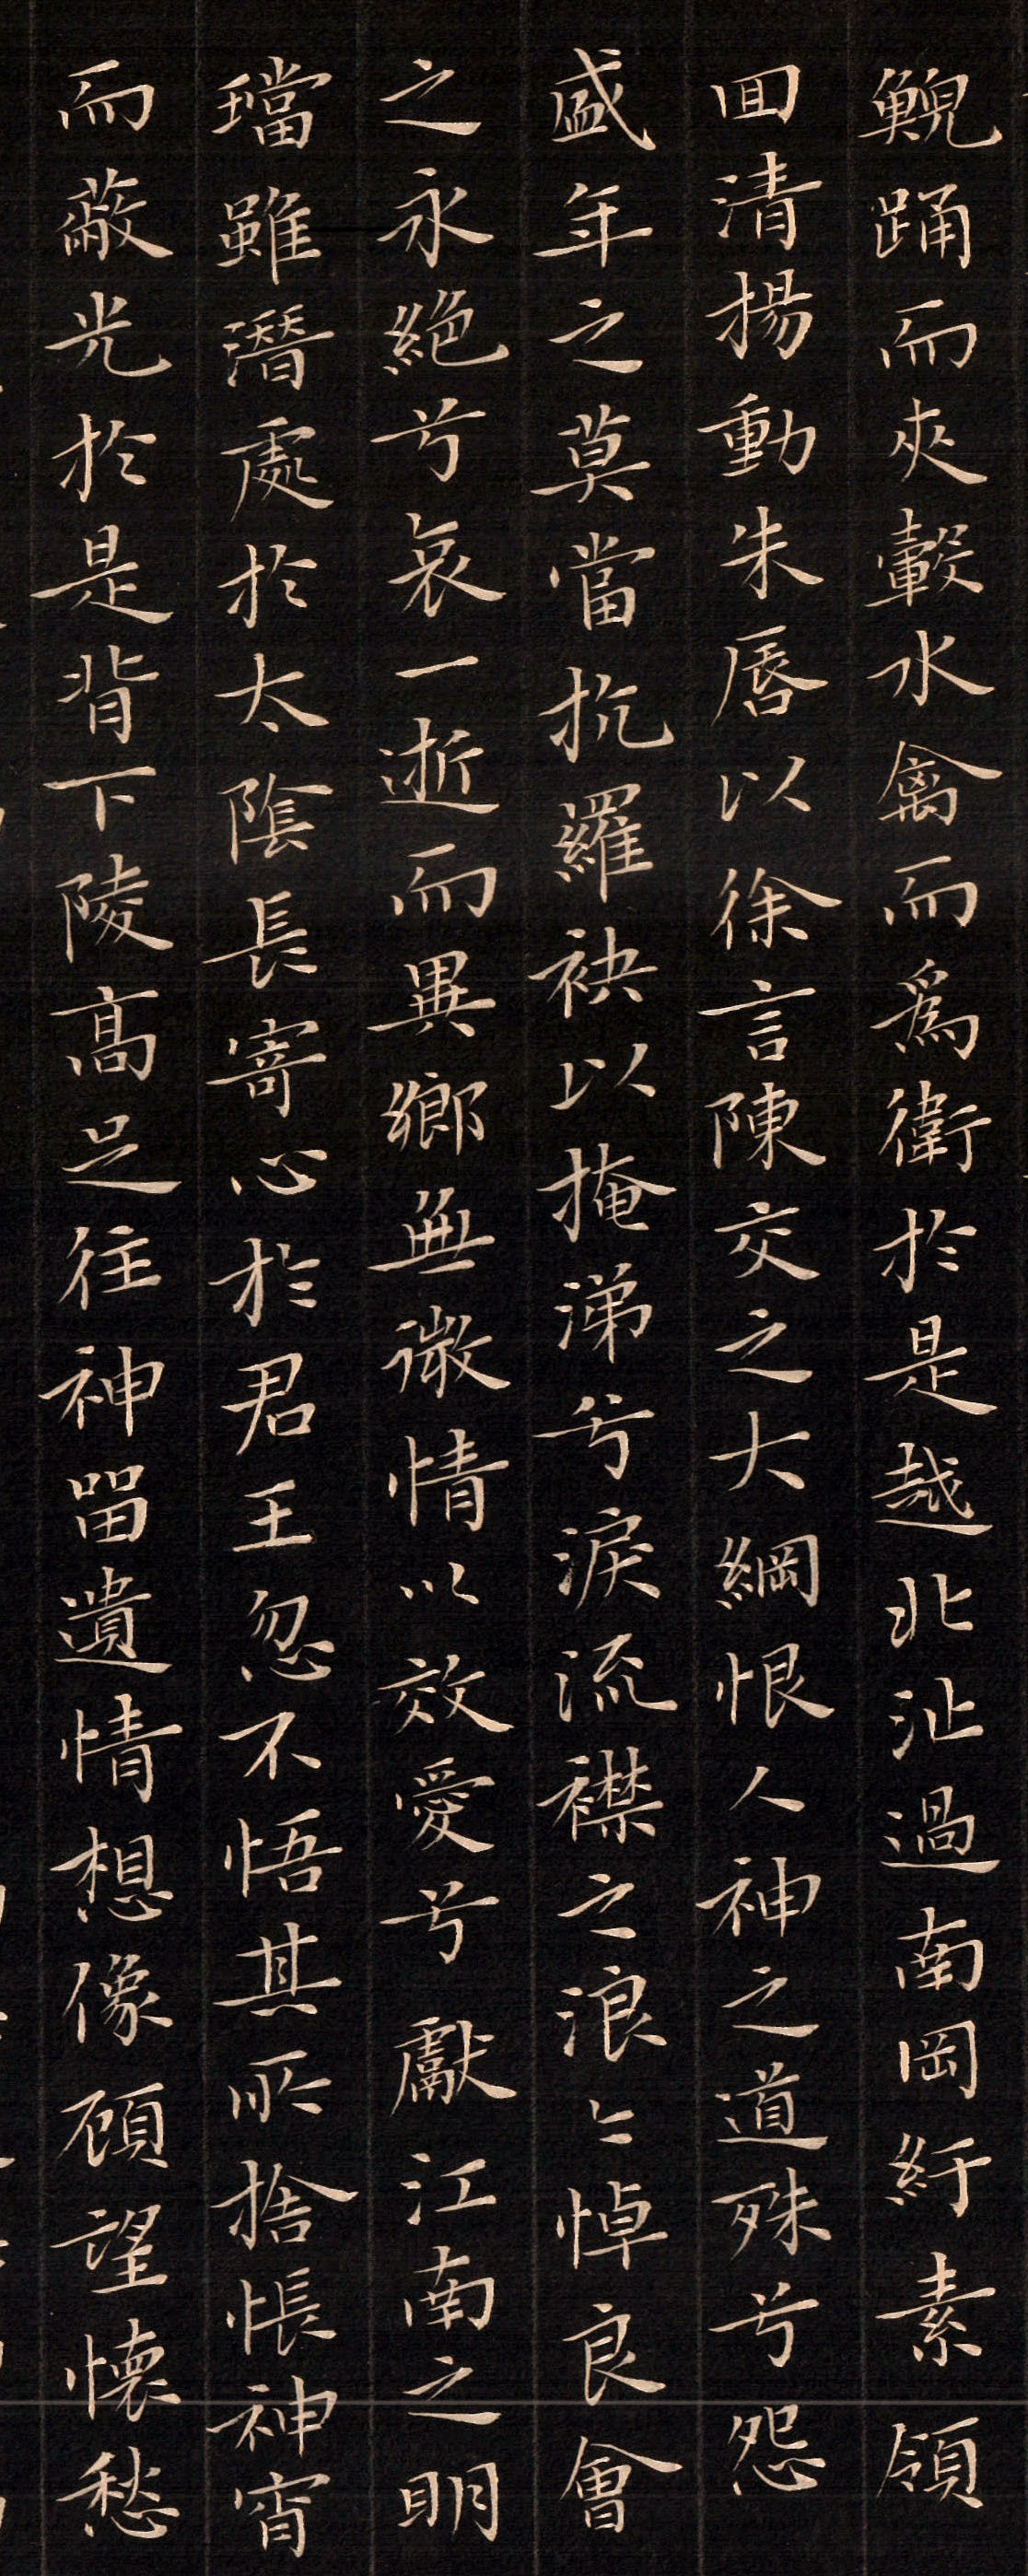 鯢踊而夾轂水禽而為衛於是越北沚過南岡紆素領
回清揚動朱唇以徐言陳交之大綱恨人神之道殊兮怨
盛年之莫當抗羅袂以掩涕兮淚流襟之浪〻悼良會
之永絕兮哀一逝而異鄉無微情以效愛兮獻江南之明
璫雖潛處於太陰長寄心於君王忽不悟其所捨悵神宵
而蔽光於是背下陵高足往神留遺情想像顧望懷愁